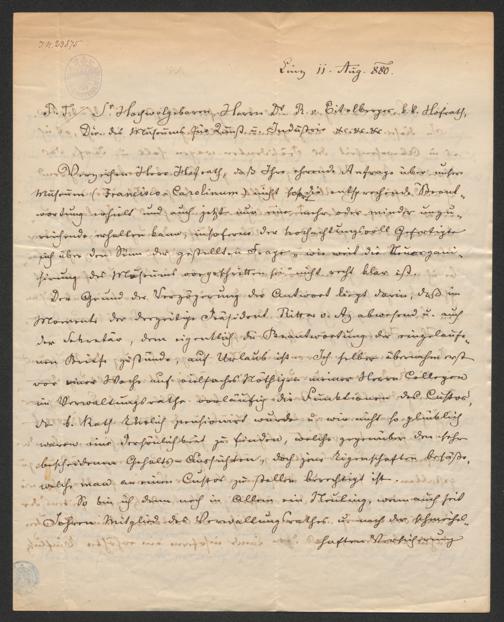 J.N. 29875
Linz 11. Aug. 880.
P. T. Sr Hochwolgeboren Herrn Dr. R. v. Eitelberger, k. k. Hofrath,
Dir. des Museums für Kunst u. Industrie etc. etc. etc.
Verzeihen Herr Hofrath, daß Ihre ehrende Anfrage über unser
Museum (Francisco-Carolinum) nicht sofort die entsprechende Beant-
wortung erhielt und auch jetzt nur eine mehr oder minder unzu-
reichende erhalten kann, insoferne der hochachtungsvoll Gefertigte
sich über den Sinn der gestellten Frage, wie weit die Neuorgani-
sierung des Museums vorgeschritten sei, nicht recht klar ist.
Der Grund der Verzögerung der Antwort liegt darin, daß im
Momente der derzeitige Präsident Ritter v. Az abwesend u. auch
der Sekretär, dem eigentlich die Beantwortung der eingelaufe-
nen Briefe zustünde, auf Urlaub ist. Ich selber übernahm erst
vor einer Woche auf vielfaches Nöthigen meiner Herrn Collegen
im Verwaltungsrathe vorläufig die Funktionen des Custos,
da k. Rath Ehrlich pensionirt wurde u. wir nicht so glücklich
waren eine Persönlichkeit zu finden, welche gegenüber den sehr
bescheidenen Gehalts-Aussichten, doch jene Eigenschaften besäße,
welche man an einen Custos zu stellen berechtigt ist.
So bin ich denn noch in Allem ein Neuling, wenn auch seit
Jahren Mitglied des Verwaltungsrathes u. nach der schmeichel-
haften Versicherung